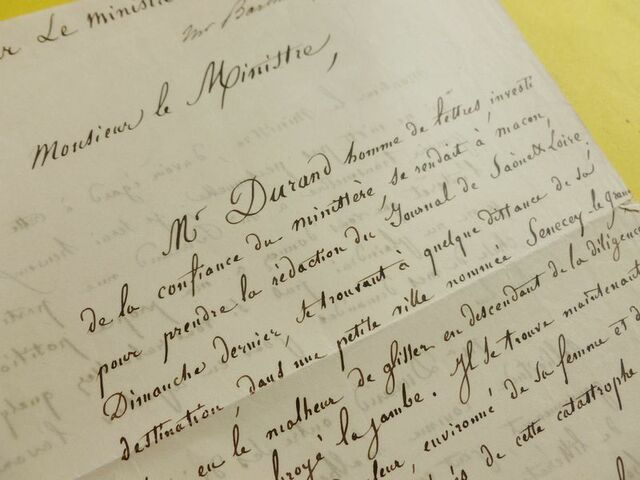 Le ministre
Monsieur le Ministre,
Mr Durand homme de lettres investi
de la confiance du ministère, se rendait à macon,
pour prendre la rédaction du Journal de Saône & Loire.
Dimanche dernier, se trouvant à quelque distance de sa
destination, dans une petite ville nommée Senecey-le-Gran
en le malheur de glisser en descendant de la diligence
broyé la jambe. Il se trouve maintenant
environné de sa femme et d
de cette catastrophe